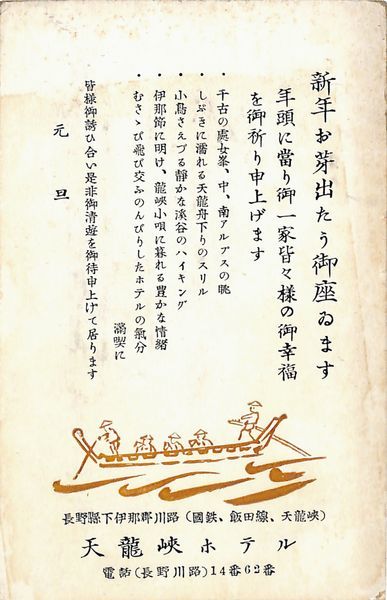 新年お芽出たう御座ゐます
年頭に當り御一家皆々様の御幸福
を御祈り申上げます
・千古の處女峯、中、南アルプスの眺
・しぶきに濡れる天龍舟下りのスリル
・小鳥さえづる靜かな溪谷のハイキング
・伊那節に明け、龍峽小唄に暮れる豊かな情緒
・むさゝび飛び交ふのんびりしたホテルの氣分
満喫に
皆様御誘ひ合い是非御清遊を御待申上げて居ります
元旦
長野縣下伊那郡川路(國鉄、飯田線、天龍峽)
天龍峽ホテル
電話(長野川路)14番62番